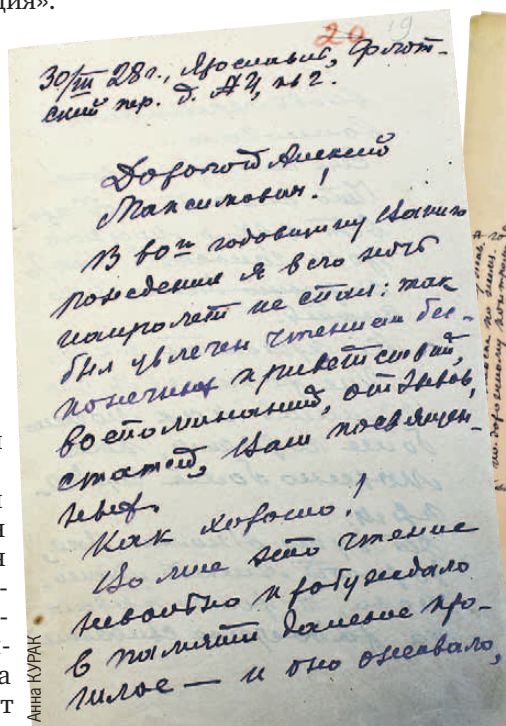 ция».
20 19
30/III 28 г., Ярославль, Флот-
ский пер. д. № 4, кв 2.
Дорогой Алексей
Максимович!
В 60ю годовщину Вашего
рождения я всю ночь
напролет не спал: так
был увлечен чтением бес-
конечных приветствий,
воспоминаний, отзывов,
статей, Вам посвящен-
ных.
Как хорошо!
Во мне это чтение
невольно пробуждало
в памяти далекое про-
шлое — и оно оживало,
Анна КУРАК